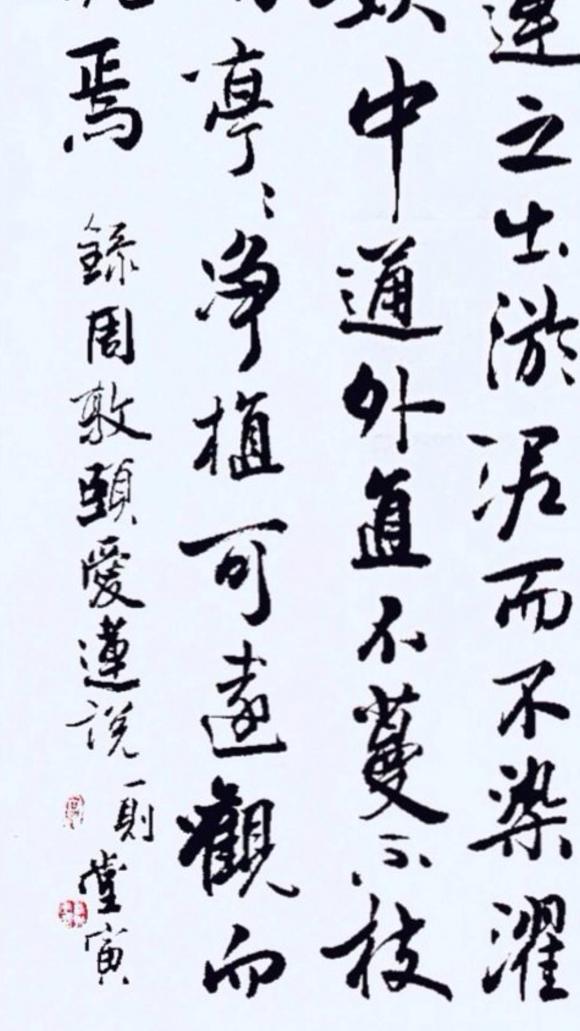 蓮之出淤泥而不染濯
中通外直不蔓不枝
亭〻净植可遠觀而
焉
錄周敦頤愛蓮說一則
寅